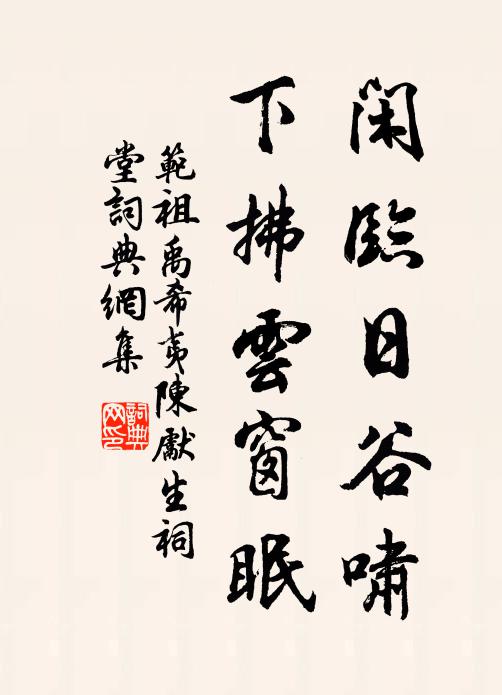 閑臨日谷嘯
下拂雲窗眠
範祖禹希夷陳獻生祠
堂詞典網集
詞典
网印